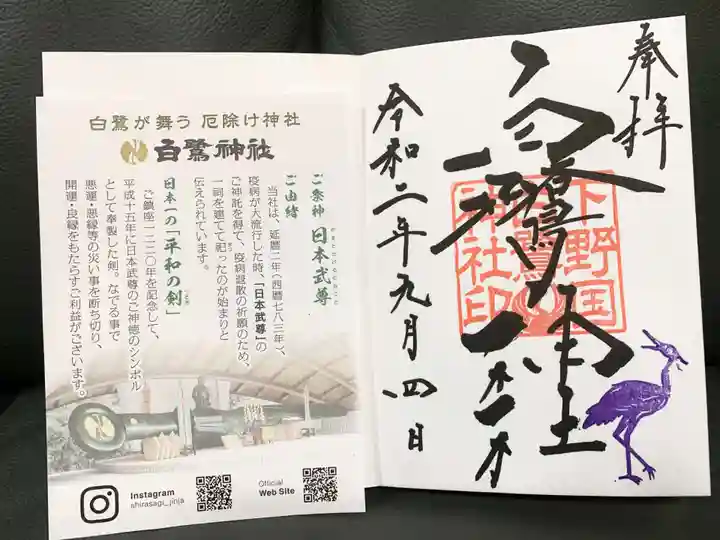 白鷺が舞う 厄除け神社
白鷺神社
ご祭神 日本武尊
ご由緒
当社は、延暦二年(西暦七八三年)、
疫病が大流行した時、「日本武尊」の
ご神託を得て、疫病退散の祈願のため、
一祠を建てて祀ったのが始まりと
伝えられています。
日本一の「平和の剣」
ご鎮座一二二〇年を記念して、
平成十五年に日本武尊のご神徳のシンボル
として奉製した剣。なでる事で
悪運・悪縁等の災い事を断ち切り、
開運・良縁をもたらすご利益がございます。
Instagram
shirasagi_jinja
Official
Web Site
奉拝
白鷺
神社
下野国
白鷺
神社印
令和二年九月四日